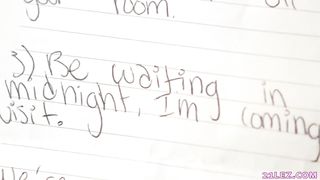 your room.
3) Be waiting in
midnight, I'm coming
visit.
21LEZ.COM